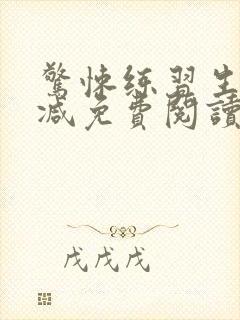 驚悚練習生
減免費閱讀
戊戊戊